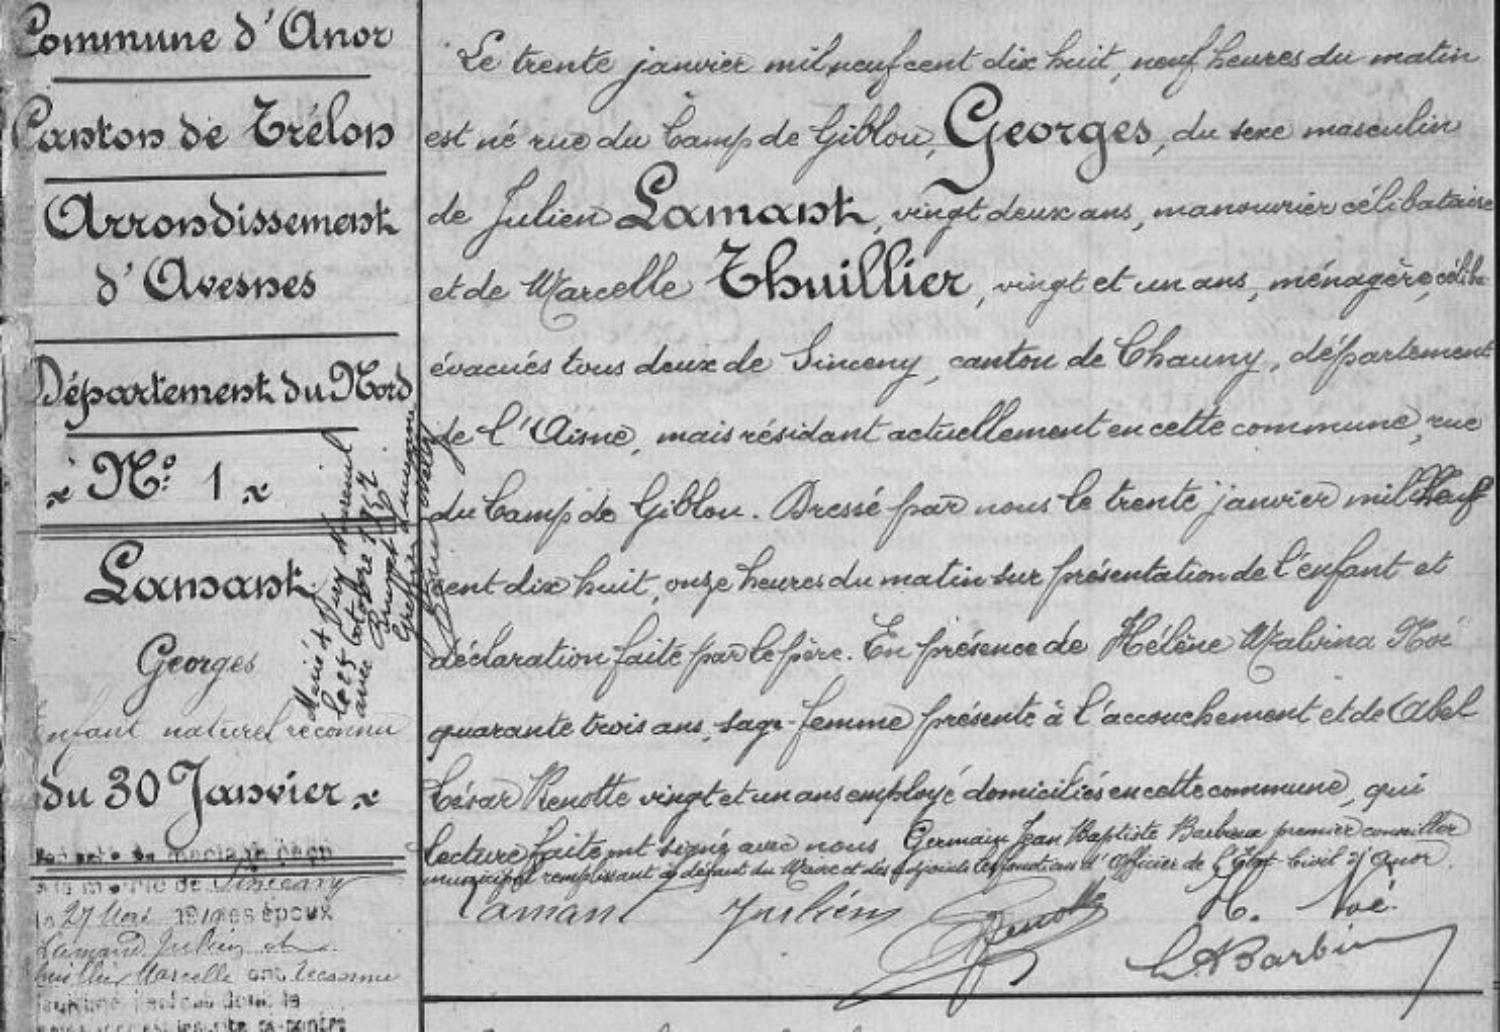 Commune d'Anor
Canton de Trélon
Arrondissement
d'Avesnes
Département du Nord
N° 1
Lamant
Georges
Enfant naturel reconnu
du 30 Janvier
Marié à
le 25 Octobre
avec
la mairie de Sinceny
le 27 Mars 19 les époux
Lamand Julien et
Thuillier Marcelle ont reconnu
Le trente janvier mil neuf cent dix huit, neuf heures du matin
est né rue du Camp de Giblou, Georges, du sexe masculin
de Julien Lamant, vingt deux ans, manouvrier célibataire
et de Marcelle Thuillier, vingt et un ans, ménagère, céliba
évacués tous deux de Sinceny, canton de Chauny, département
de l'Aisne, mais résidant actuellement en cette commune, rue
du Camp de Giblou. Dressé par nous le trente janvier mil neuf
cent dix huit, onze heures du matin sur présentation de l'enfant et
déclaration faite par le père. En présence de Hélène Malvina Noé
quarante trois ans, sage-femme présente à l'accouchement et de Abel
César Renotte vingt et un ans employé domiciliés en cette commune, qui
lecture faite ont signé avec nous Germain Jean Baptiste Barbeux premier conseiller
municipal remplissant à défaut du Maire et des adjoints les fonctions d'Officier de l'Etat Civil d'Anor.
Lamant Julien Renotte H. Noé